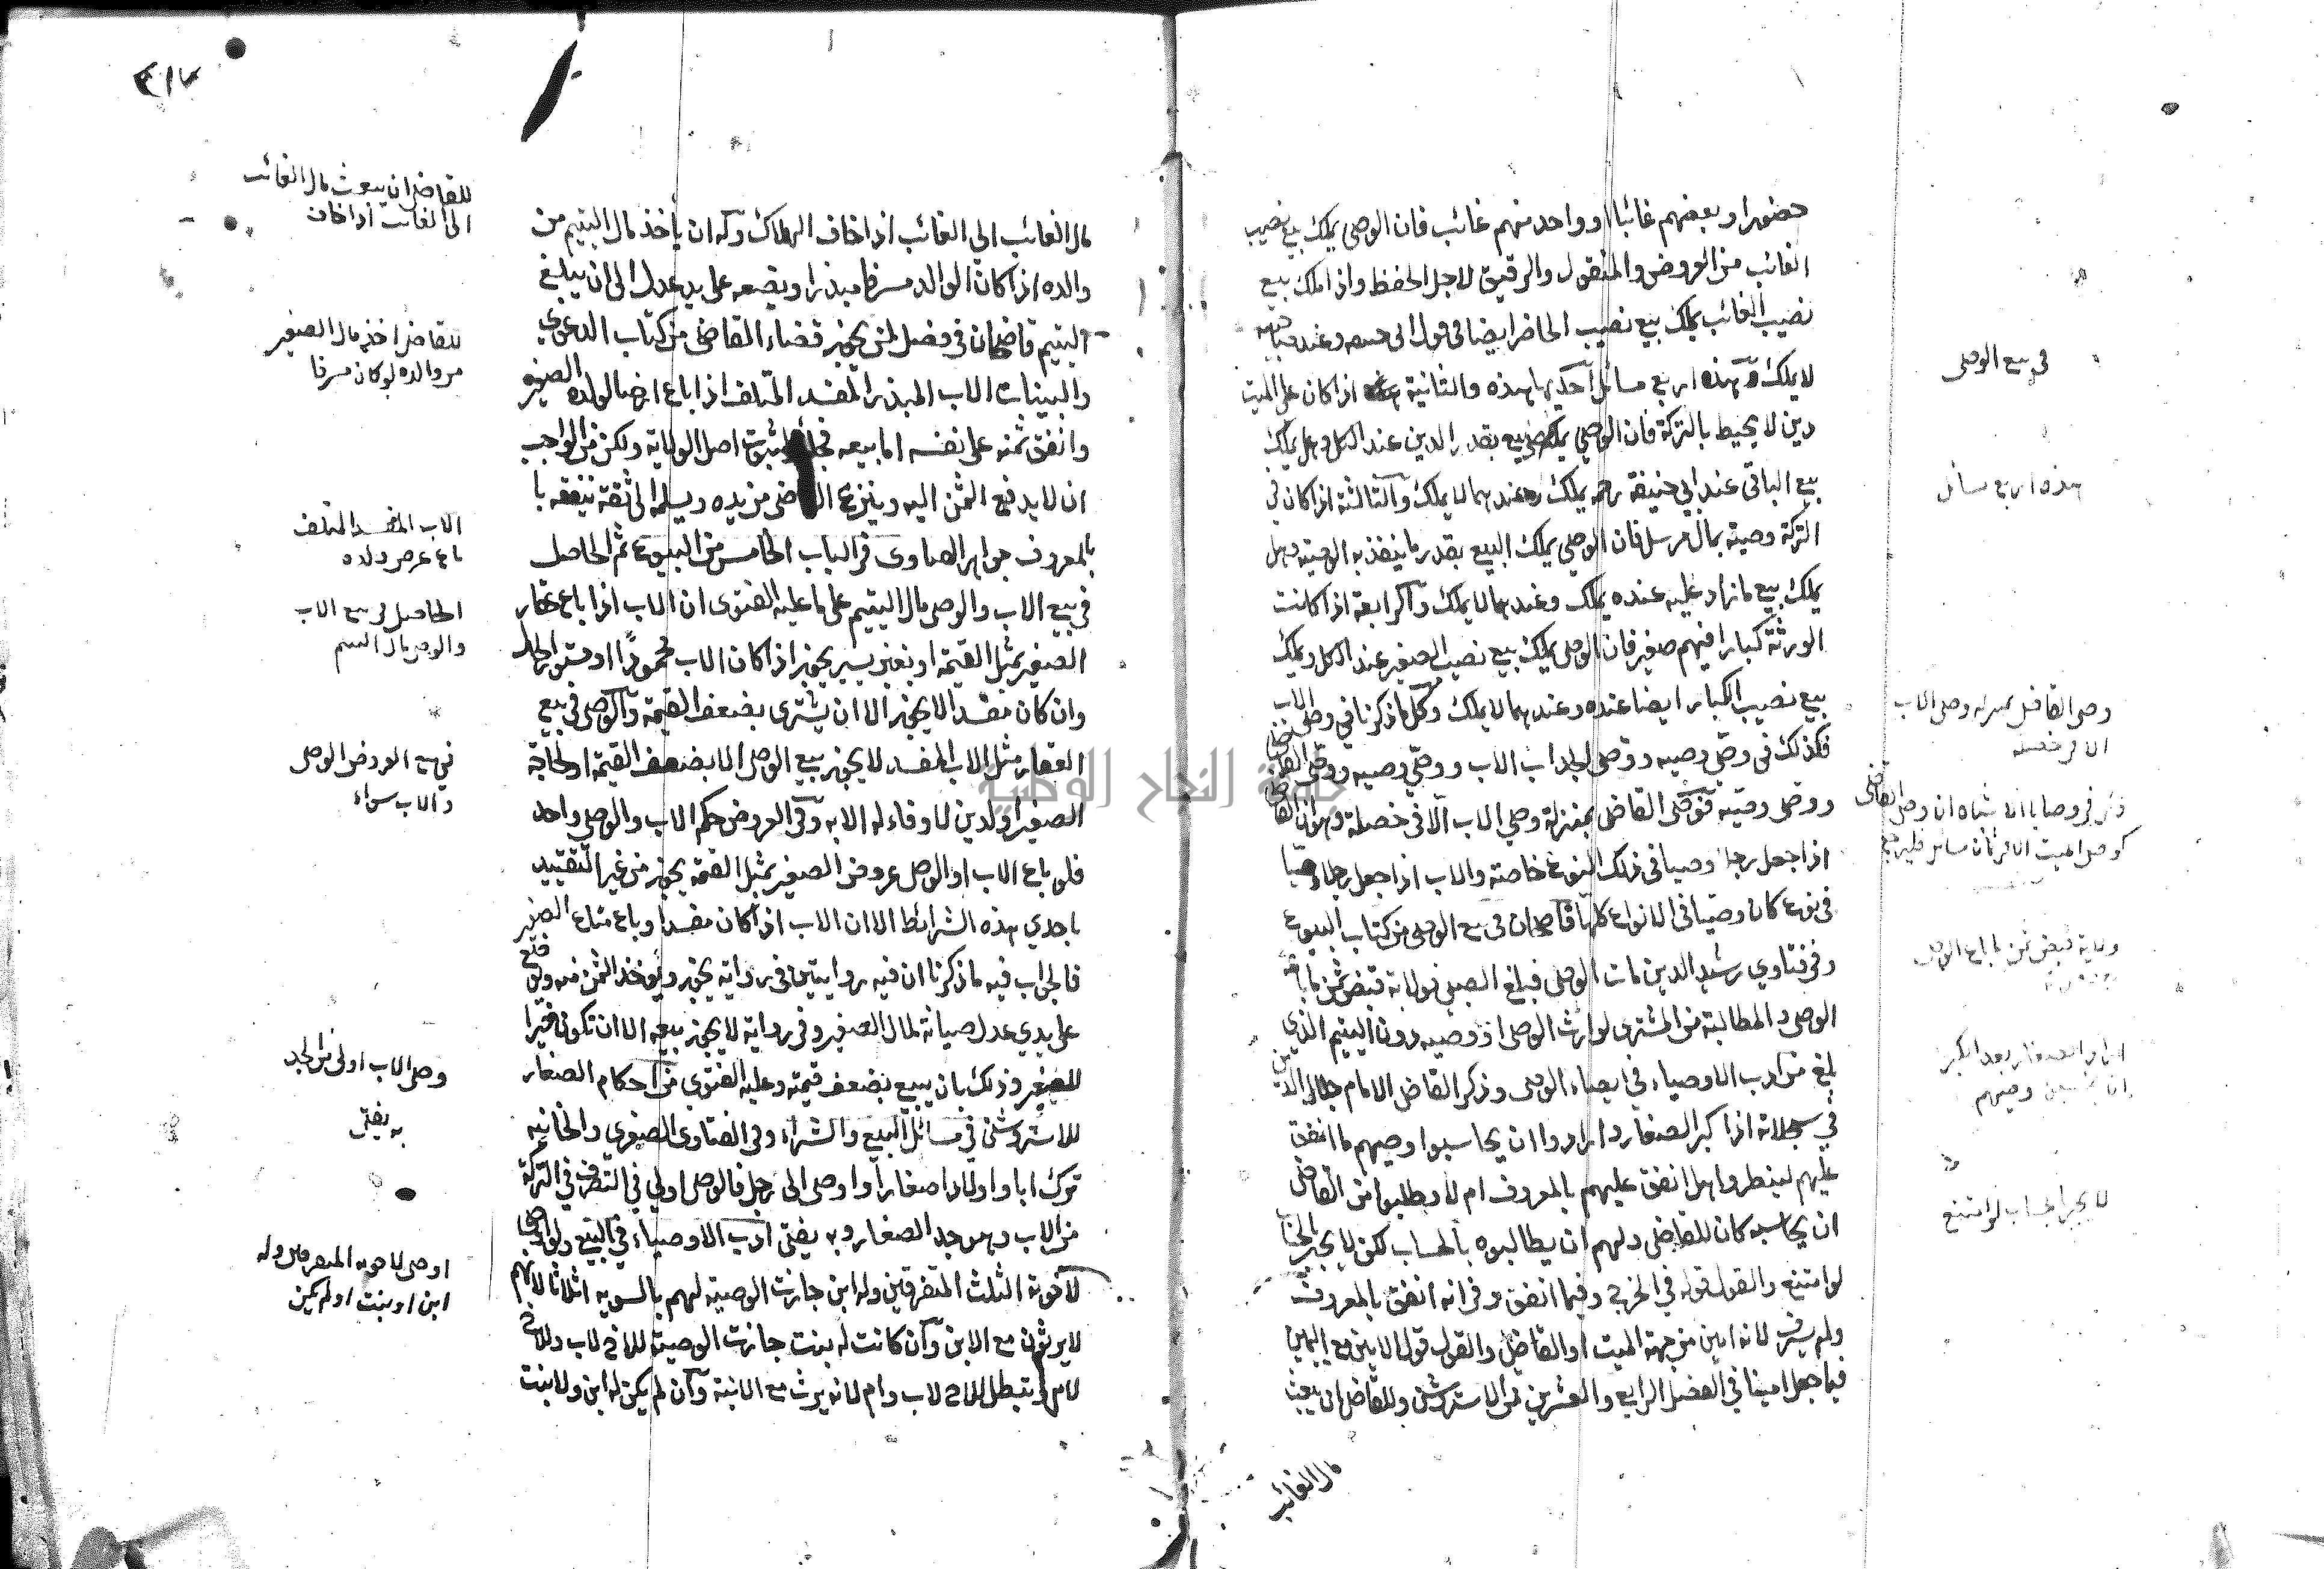 حضورا وبعضهم غائبا او واحد منهم غائب فان الوصي يملك بيع نصيب
الغائب من العروض والمنقول والرقيق لاجل الحفظ واذا ملك بيع
نصيب الغائب يملك بيع نصيب الحاضر ايضا في قول ابي وعند
لا يملك وهذه اربع مسائل احديها هذه والثانية اذا كان على الميت
دين لا يحيط بالتركة فان الوصي يملك بيع بقدر الدين عند الكل وهل يملك
بيع الباقي عند ابي حنيفة رحمه يملك وعندهما لا يملك والثالثة اذا كان في
التركة وصية بمال مرسل فان الوصي يملك البيع بقدر ما ينفذ به الوصية وهل
يملك بيع ما زاد عليه عنده يملك وعندهما لا يملك والرابعة اذا كانت
الورثة كبارا فيهم صغير فان الوصي يملك بيع نصيب الصغير عند الكل ويملك
بيع نصيب الكبار ايضا عنده وعندهما لا يملك وكل ما ذكرنا في وصي الاب
فكذلك في وصي وصيه ووصي الجد اب الاب ووصي وصيه ووصي القاضي
ووصي وصيه فوصي القاضي بمنزلة وصي الاب الا في خصلة وهو ان القاضي
اذا جعل رجلا وصيا في ذلك النوع خاصة والاب اذا جعل رجلا وصيا
في نوع كان وصيا في الانواع كلها قاضيخان في بيع الوصي من كتاب البيوع
وفي فتاوي رشيد الدين مات الوصي فبلغ الصبي فولاية قبض ثمن ما باعه
الوصي والمطالبة من المشتري لوارث الوصي او وصيه دون اليتيم الذي
بلغ من ادب الاوصياء في ايصاء الوصي وذكر القاضي الامام جلال الدين
في سجلاته اذا كبر الصغار وارادوا ان يحاسبوا وصيهم ما انفق
عليهم لينظروا هل انفق عليهم بالمعروف ام لا وطلبوا من القاضي
ان يحاسبه كان للقاضي ولهم ان يطالبوه بالحساب لكن لا يجبر
لو امتنع والقول قوله في الخرج وفيما انفق وفي انه انفق بالمعروف
ولم يسرف لانه امين من جهة الميت او القاضي والقول قول الامين مع اليمين
فيما جعل امينا في الفصل الرابع والعشرين من الاستروشني وللقاضي ان يبعث
مال الغائب
في بيع الوصي
هذه اربع مسائل
وصي القاضي بمنزلة وصي الاب
الا في خصلة
كوصي الميت الا في ثمان مسائل
لا يجبر الحساب لو امتنع
مال الغائب الي الغائب اذا خاف الهلاك وله ان ياخذ مال اليتيم من
والده اذا كان الوالد مسرفا مبذرا ويضعه على يد عدل الى ان يبلغ
اليتيم قاضيخان في فصل يجوز قضاء القاضي من كتاب الدعوي
والبينات الاب المبذر المفسد المتلف اذا باع ارضا لولده الصغير
وانفق ثمنه على نفسه اما بيعه فجائز لثبوت اصل الولاية ولكن من الواجب
ان لا يدفع الثمن اليه وينزع القاضي من يده ويسلمه الى ثقة ينفقه با
بالمعروف جواهر الفتاوى في الباب الخامس من البيوع ثم الحاصل
في بيع الاب والوصي مال اليتيم على ما عليه الفتوى ان الاب اذا باع عقار
الصغير بمثل القيمة او بغبن يسير يجوز اذا كان الاب محمودا او مستور الحال
وان كان مفسدا لا يجوز الا ان يشتري بضعف القيمة والوصي في بيع
العقار مثل الاب المفسد لا يجوز بيع الوصي الا بضعف القيمة او لحاجة
الصغير او لدين لا وفاء له الا به وفي العروض حكم الاب والوصي واحد
فلو باع الاب او الوصي عروض الصغير بمثل القيمة يجوز من غير التقييد
باحدي هذه الشرائط الا ان الاب اذا كان مفسدا وباع متاع الصغير
فالجواب فيه ما ذكرنا ان فيه روايتين في رواية يجوز ويوخذ الثمن منه ويوضع
على يدي عدل صيانة لمال الصغير وفي رواية لا يجوز بيعه الا ان تكون خيرا
للصغير وذلك بان يبيع بضعف قيمته وعليه الفتوي من احكام الصغار
للاستروشني في مسائل البيع والشراء وفي الفتاوى الصغري والخانيه
ترك ابا واولادا صغارا واوصى الى رجل فالوصي اولي في التصرف في التركة
من الاب وهو جد الصغار وبه يفتى ادب الاوصياء في البيع ولو اوصى
لاخوته الثلث المتفرقين وله ابن جازت الوصية لهم بالسويه اثلاثا لانهم
لا يرثون مع الابن وان كانت له بنت جازت الوصية للاخ لاب وللاخ
لام وتبطل للاخ لاب وام لانه يرث مع الابنة وان لم يكن له ابن ولا بنت
للقاضي ان يبعث مال الغائب
الى الغائب اذا خاف
للقاضي اخذ مال الصغير
من والده لو كان مسرفا
الاب المفسد المتلف
باع عرض ولده
الحاصل في بيع الاب
والوصي مال اليتيم
في بيع العروض الوصي
والاب سواء
وصي الاب اولى من الجد
به يفتى
اوصى لاخوته المتفرقين وله
ابن او بنت او لم يكن
جامعة النجاح الوطنية